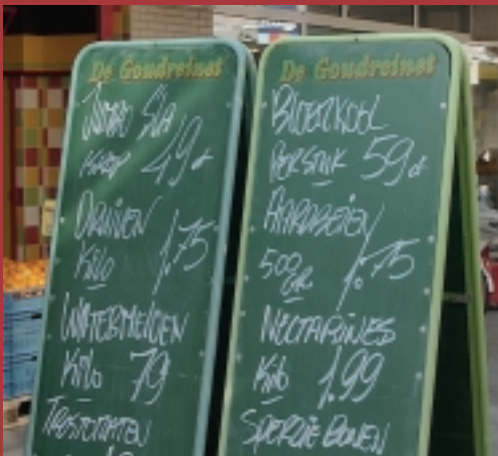 De Goudreinet
JUMBO SLA
KROP 49 ct
DRUIVEN
KILO 1.75
WATERMELOEN
Kilo 79
TROSTOMATEN
De Goudreinet
BLOEMKOOL
PER STUK 59 ct
AARDBEIEN
500 GR 1.75
NECTARINES
Kilo 1.99
SPERZIE BONEN